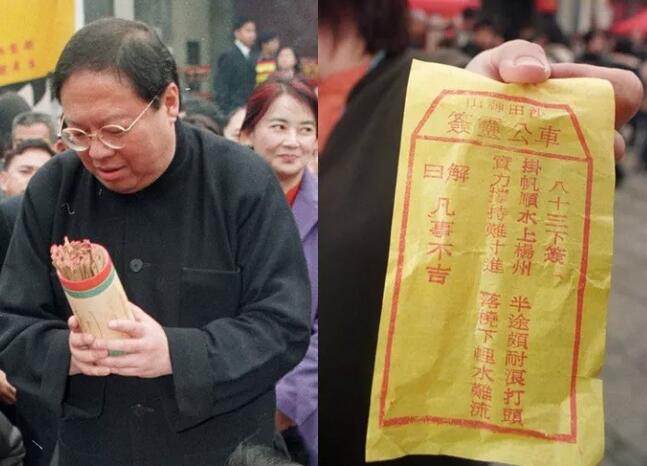 沙田神山
車公靈簽
八十三下簽
掛帆順水上楊州 半途頗耐浪打頭
實力撐持難寸進 落橈下水難流
解曰 凡事不吉